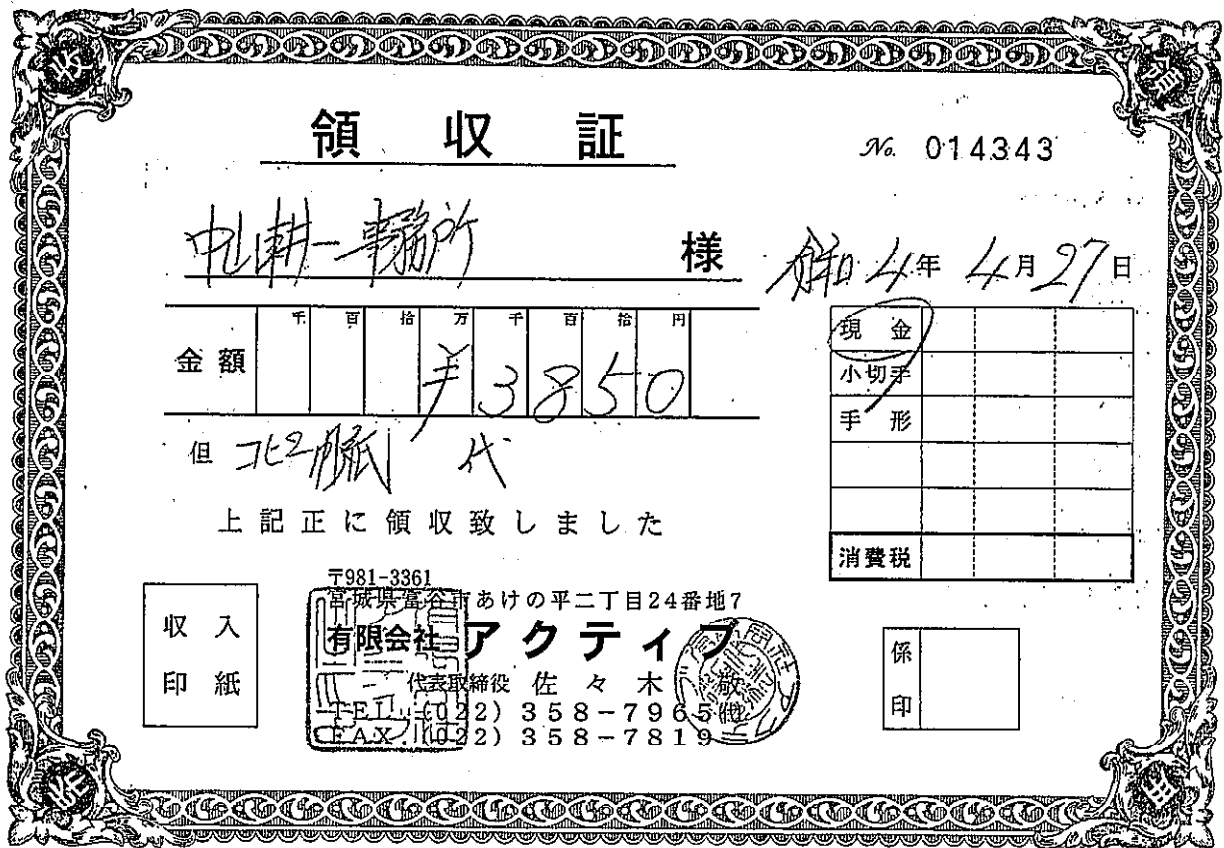 領収証
No. 014343
中山耕一事務所 様
令和 4年 4月 27日
千 百 拾 万 千 百 拾 円
金額 ¥3850
現金
小切手
手形
消費税
但 コピー用紙 代
上記正に領収致しました
収入
印紙
〒981-3361
宮城県富谷市あけの平二丁目24番地7
有限会社 アクティブ
代表取締役 佐々木 敬
TEL. (022) 358-7965(代)
FAX. (022) 358-7819
係
印